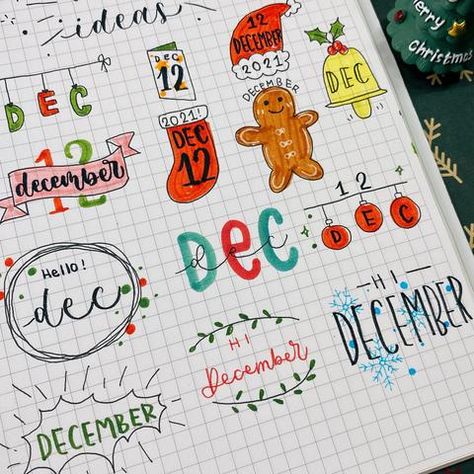 ideas
DEC
DEC
12
12
DECEMBER
2021
DEC
12
december
2021!
DEC
12
DECEMBER
Hello!
dec
DEC
dec
12
DEC
HI
DECEMBER
HI
December
DECEMBER
Merry
Christmas